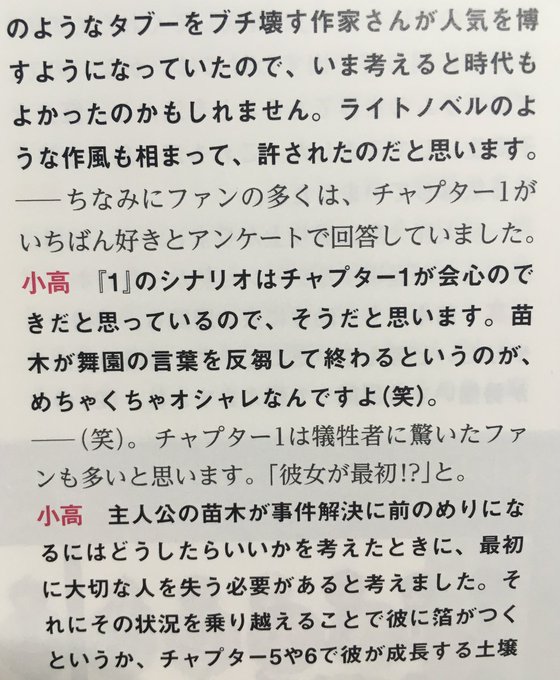 のようなタブーをブチ壊す作家さんが人気を博
すようになっていたので、いま考えると時代も
よかったのかもしれません。ライトノベルのよ
うな作風も相まって、許されたのだと思います。
――ちなみにファンの多くは、チャプター1が
いちばん好きとアンケートで回答していました。
小高　『1』のシナリオはチャプター1が会心ので
きだと思っているので、そうだと思います。苗
木が舞園の言葉を反芻して終わるというのが、
めちゃくちゃオシャレなんですよ（笑）。
――（笑）。チャプター1は犠牲者に驚いたファ
ンも多いと思います。「彼女が最初!?」と。
小高　主人公の苗木が事件解決に前のめりにな
るにはどうしたらいいかを考えたときに、最初
に大切な人を失う必要があると考えました。そ
れにその状況を乗り越えることで彼に箔がつく
というか、チャプター5や6で彼が成長する土壌